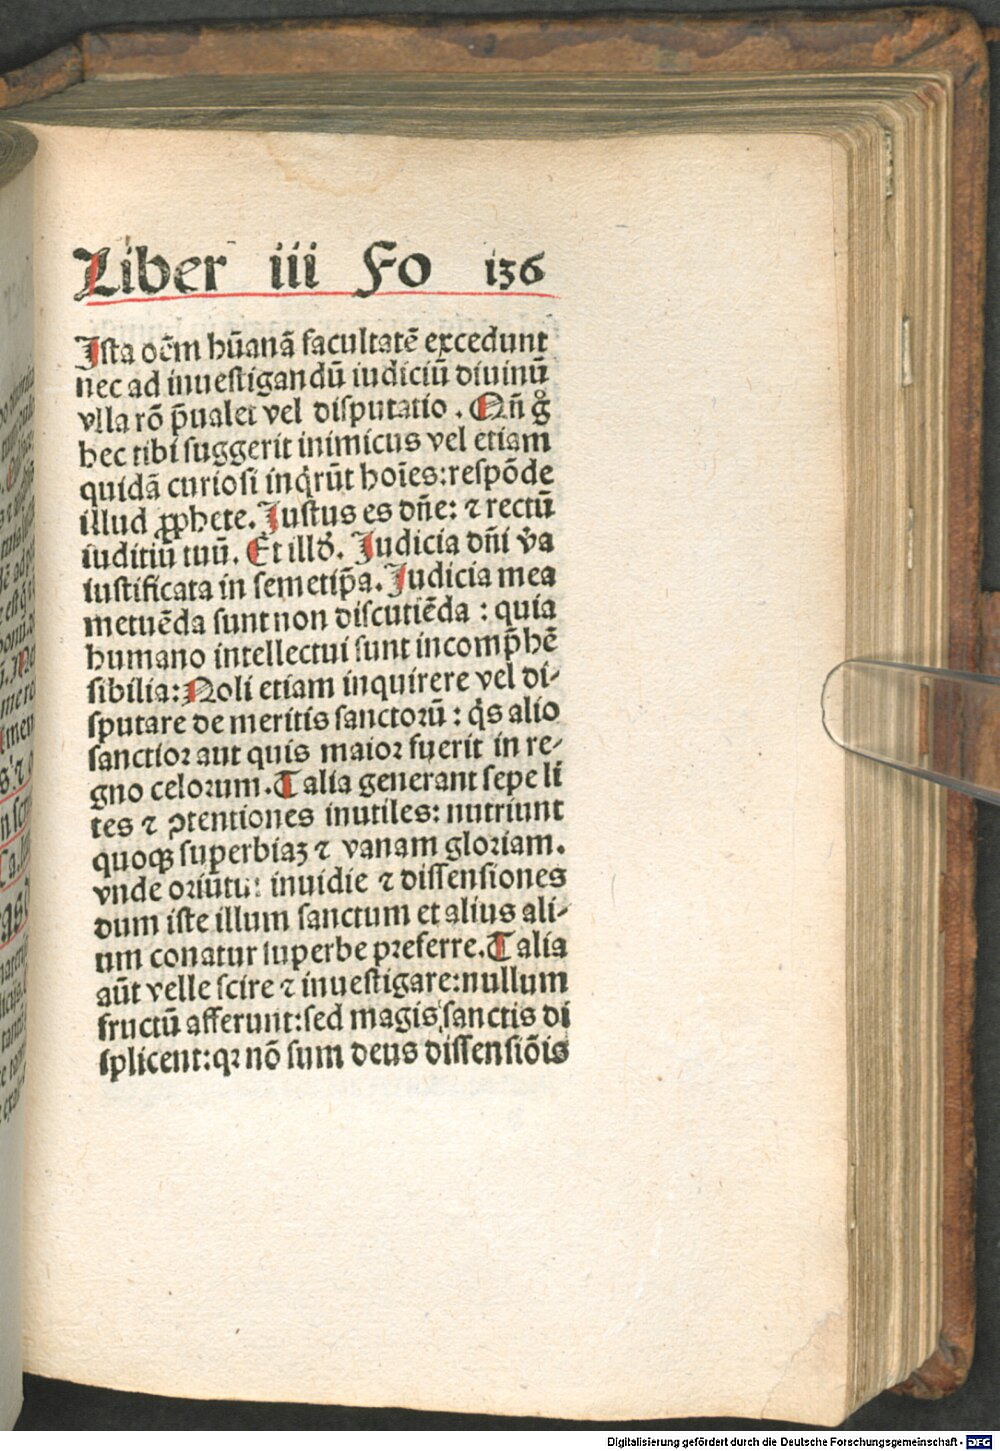 Liber iii Fo 136
Ista oēm hūanā facultatē excedunt
nec ad inuestigandū iudiciū diuinū
vlla rō p̄ualet vel disputatio. Qn̄ gͦ
hec tibi suggerit inimicus vel etiam
quidā curiosi inq̇rūt hoīes:respōde
illud ꝓphete. Justus es dn̄e: ⁊ rectū
iuditiū tuū. Et illḋ. Judicia dn̄i v̇a
iustificata in semetip̄a. Judicia mea
metuēda sunt non discutiēda : quia
humano intellectui sunt incomp̄hē
sibilia: Noli etiam inquirere vel di-
sputare de meritis sanctorū : q̇s alio
sanctior aut quis maior fuerit in re-
gno celorum. Talia generant sepe li
tes ⁊ ꝯtentiones inutiles: nutriunt
quoqꝫ superbiaꝫ ⁊ vanam gloriam.
vnde oriūtur inuidie ⁊ dissensiones
dum iste illum sanctum et alius ali-
um conatur superbe preferre. Talia
aūt velle scire ⁊ inuestigare:nullum
fructū afferunt:sed magis sanctis di
splicent:qꝛ nō sum deus dissensiōis
Digitalisierung gefördert durch die Deutsche Forschungsgemeinschaft - DFG